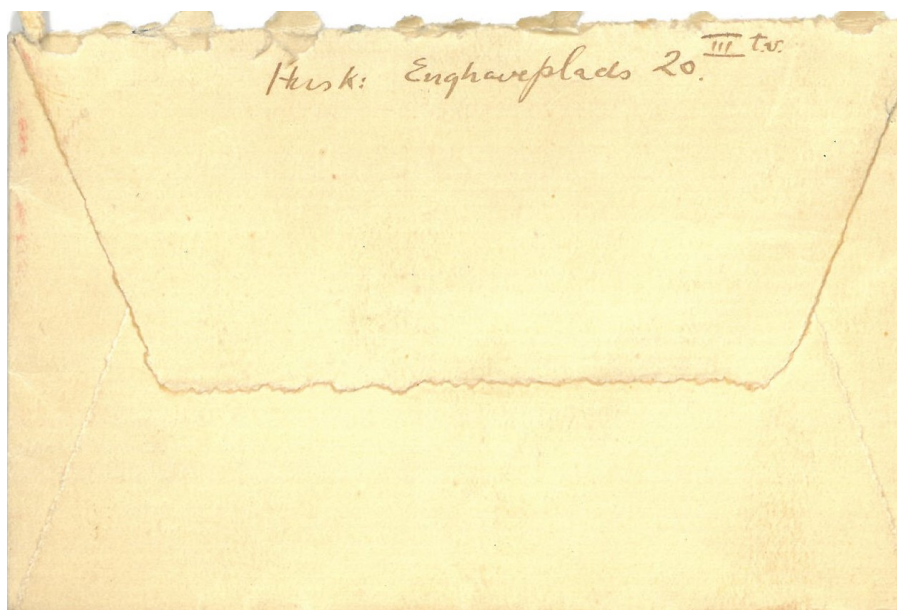 Husk: Enghaveplads 20. III t.v.